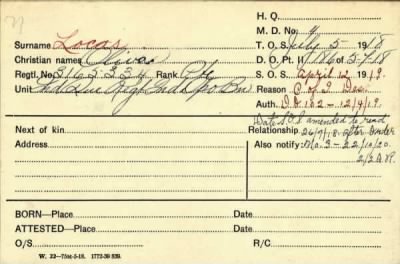 H. Q.
M. D. No. 4
Surname Locas. T. O. S. July 5 1918
Christian names Olivas D. O. Pt. II 186 of 5-7-18
Regtl. No. 3165334 Rank Pte S. O. S. April 12 1919.
Unit 2nd Que Regt 2nd Depo Bn Reason
Auth. D.O 102-12/4/19.
Date S.O.S. amended to read
Next of kin Relationship 26/7/18. after order
Address Also notify: No. 3-22/10/20.
BORN—Place Date
ATTESTED—Place Date
O/S R/C
W. 22—75M-5-18. 1772-39 839.